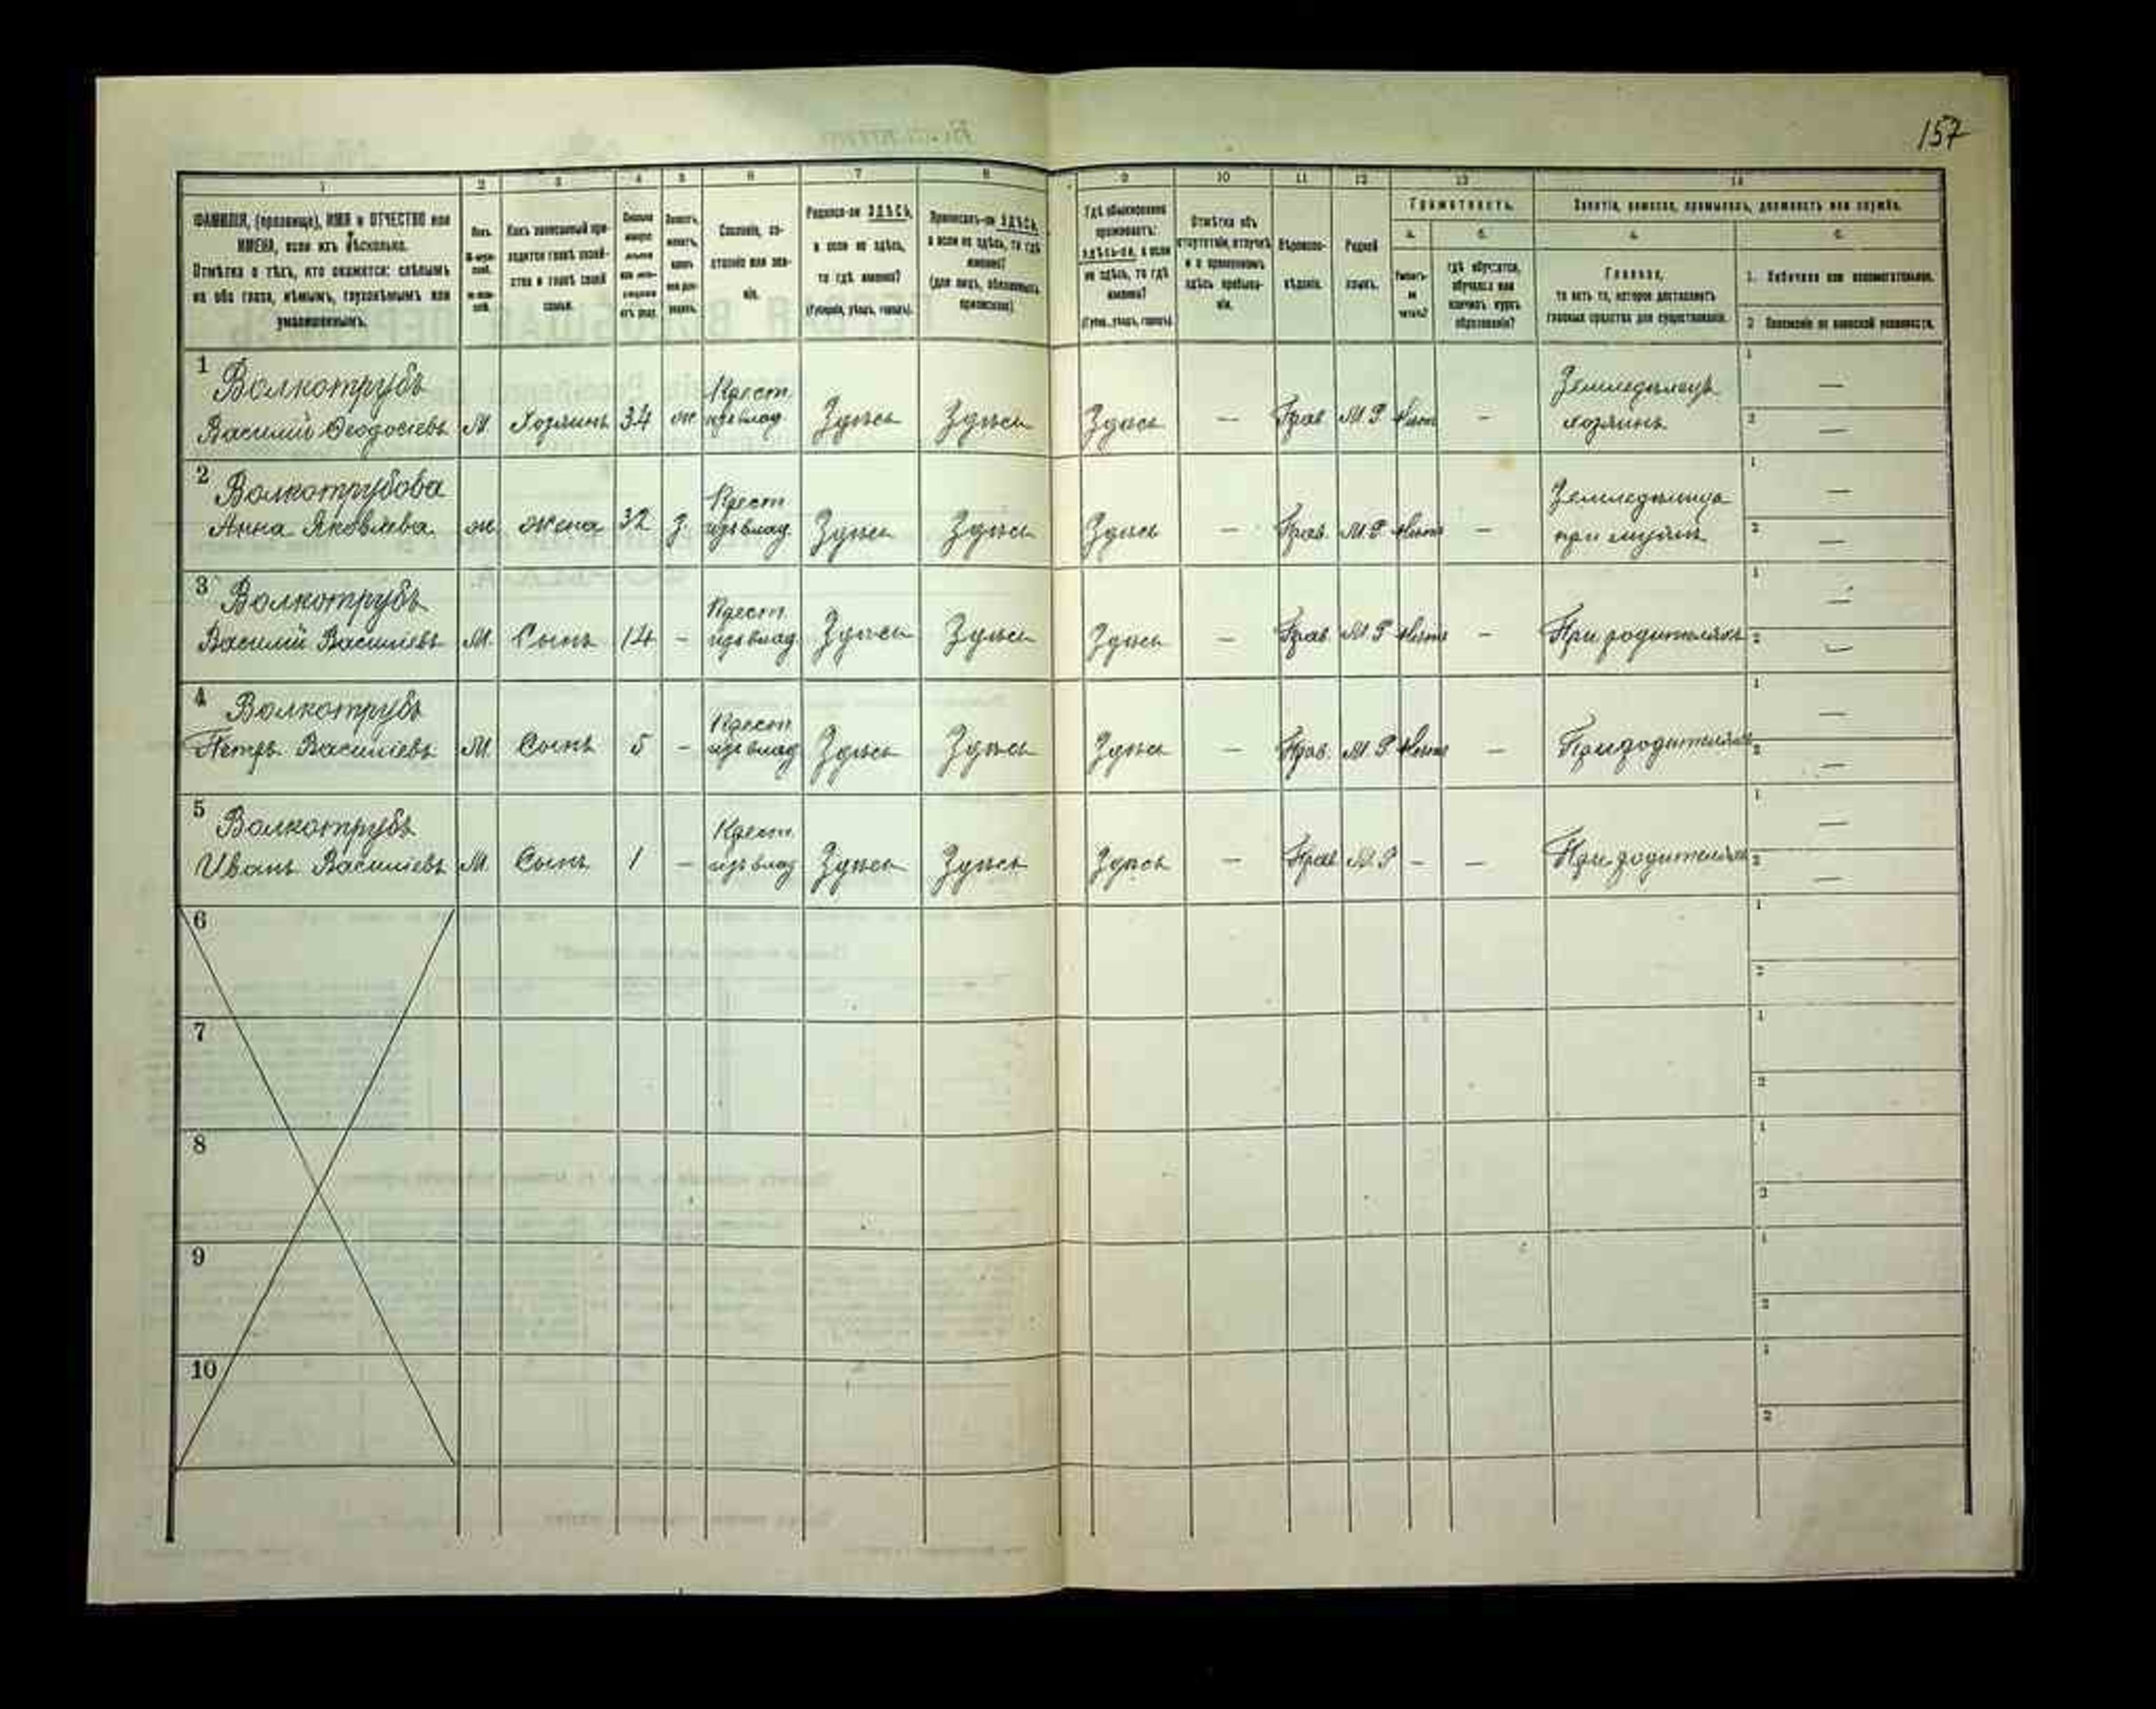 157
1 2 3 4 5 6 7 8 9 10 11 12 13 14
ФАМИЛІЯ, (прозвище), ИМЯ и ОТЧЕСТВО или
ИМЕНА, если ихъ нѣсколько.
Отмѣтка о тѣхъ, кто окажется: слѣпымъ
на оба глаза, нѣмымъ, глухонѣмымъ или
умалишеннымъ.
Полъ.
Какъ записанный при-
ходится главѣ хозяй-
ства и главѣ своей
семьи.
Сословіе, со-
стояніе или зва-
ніе.
Родился-ли ЗДѢСЬ,
а если не здѣсь,
то гдѣ именно?
(Губернія, уѣздъ, городъ).
Приписанъ-ли ЗДѢСЬ,
а если не здѣсь, то гдѣ
именно?
(для лицъ, обязанныхъ
припискою)
Гдѣ обыкновенно
проживаетъ:
здѣсь-ли, а если
не здѣсь, то гдѣ
именно?
(Губ., уѣздъ, городъ).
Отмѣтка объ
отсутствіи, отлучкѣ
и о временномъ
здѣсь пребыва-
ніи.
Вѣроиспо-
вѣданіе.
Родной
языкъ.
Грамотность.
а. б.
Умѣетъ-
ли
читать?
гдѣ обучается,
обучался или
кончилъ курсъ
образованія?
Занятіе, ремесло, промыселъ, должность или служба.
а. б.
Главное,
то есть то, которое доставляетъ
главныя средства для существованія.
1. Побочное или вспомогательное.
2 Положеніе по воинской повинности.
1 Волкотрубъ Крест. Земледѣлецъ 1 —
Василій Ѳеодосіевъ М Хозяинъ 34 ж изъ влад. Здѣсь Здѣсь Здѣсь — Прав М.Р Нѣтъ — хозяинъ 2 —
2 Волкотрубова Крест Земледѣлица 1 —
Анна Яковлева. ж. жена 32 з. изъ влад. Здѣсь Здѣсь Здѣсь — Прав. М.Р Нѣтъ — при мужѣ 2 —
3 Волкотрубъ Крест. 1 —
Василій Василіевъ М. Сынъ 14 - изъ влад. Здѣсь Здѣсь Здѣсь — Прав М.Р Нѣтъ — При родителяхъ 2 —
4 Волкотрубъ Крест 1 —
Петръ Василіевъ М. Сынъ 5 - изъ влад Здѣсь Здѣсь Здѣсь — Прав. М.Р Нѣтъ — При родителяхъ 2 —
5 Волкотрубъ Крест. 1 —
Иванъ Василіевъ М. Сынъ 1 - изъ влад Здѣсь Здѣсь Здѣсь — Прав М.Р - — При родителяхъ 2 —
6 1
2
7 1
2
8 1
2
9 1
2
10 1
2